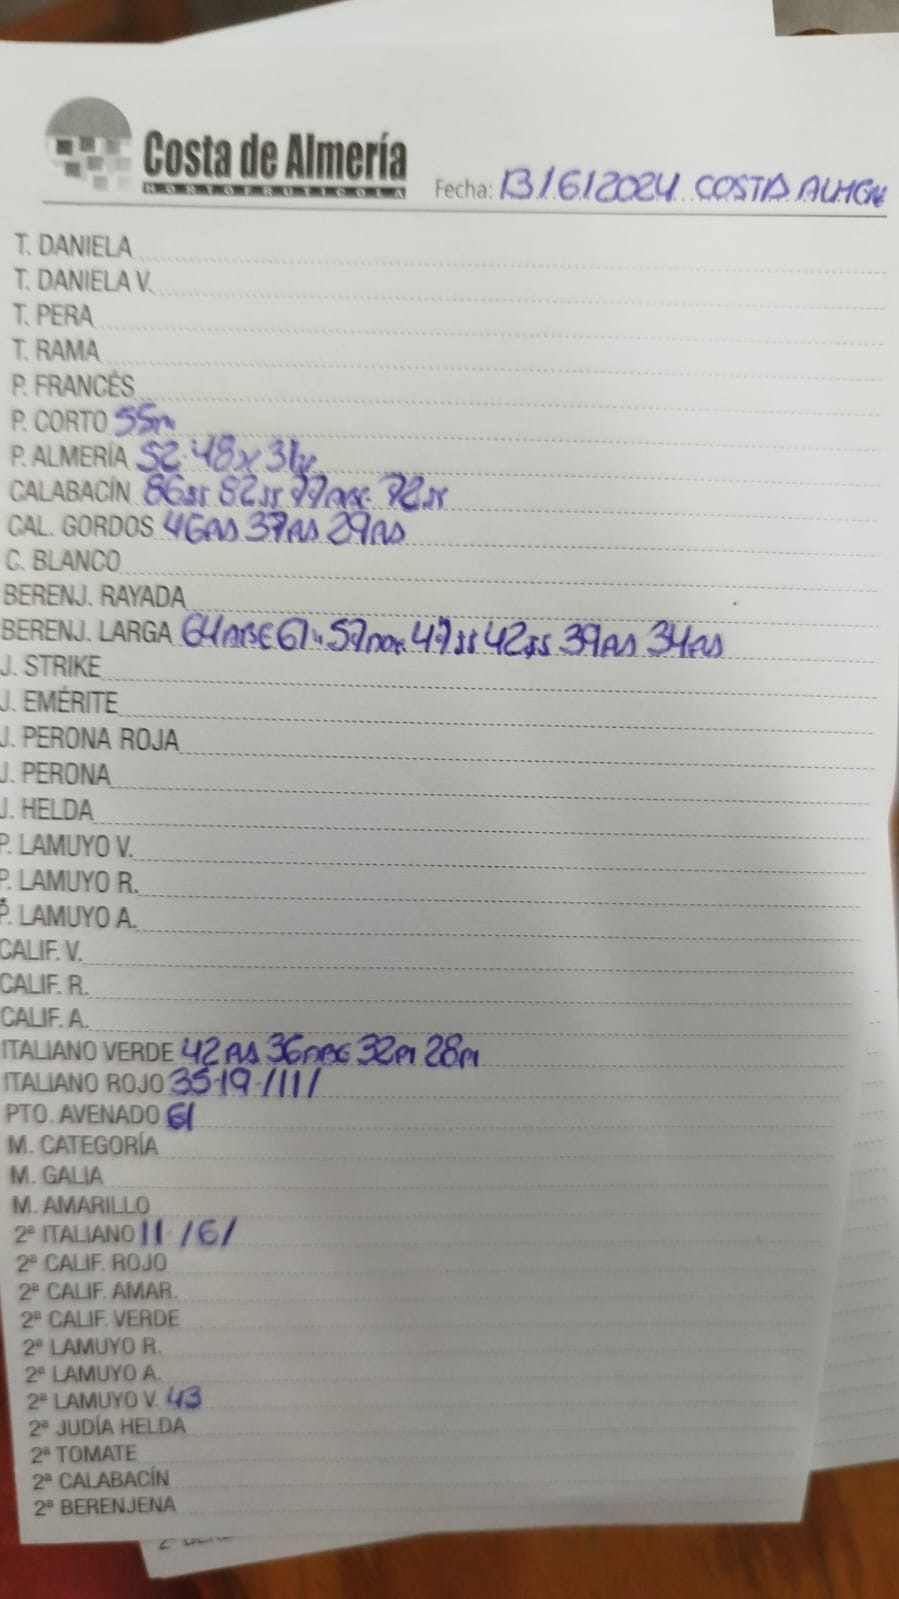 Costa de Almería
HORTOFRUTICOLA
Fecha: 13/6/2024 COSTA
T. DANIELA
T. DANIELA V.
T. PERA
T. RAMA
P. FRANCÉS
P. CORTO 55m
P. ALMERÍA 52 48x 31x
CALABACÍN 86ss 82ss 77 72ss
CAL. GORDOS 46AS 37AS 29AS
C. BLANCO
BERENJ. RAYADA
BERENJ. LARGA 64 61 57 47ss 42ss 39AS 34AS
J. STRIKE
J. EMÉRITE
J. PERONA ROJA
J. PERONA
J. HELDA
P. LAMUYO V.
P. LAMUYO R.
P. LAMUYO A.
CALIF. V.
CALIF. R.
CALIF. A.
ITALIANO VERDE 42AS 36 32m 28m
ITALIANO ROJO 35-19-/11/
PTO. AVENADO 61
M. CATEGORÍA
M. GALIA
M. AMARILLO
2ª ITALIANO 11-/6/
2ª CALIF. ROJO
2ª CALIF. AMAR.
2ª CALIF. VERDE
2ª LAMUYO R.
2ª LAMUYO A.
2ª LAMUYO V. 43
2ª JUDÍA HELDA
2ª TOMATE
2ª CALABACÍN
2ª BERENJENA